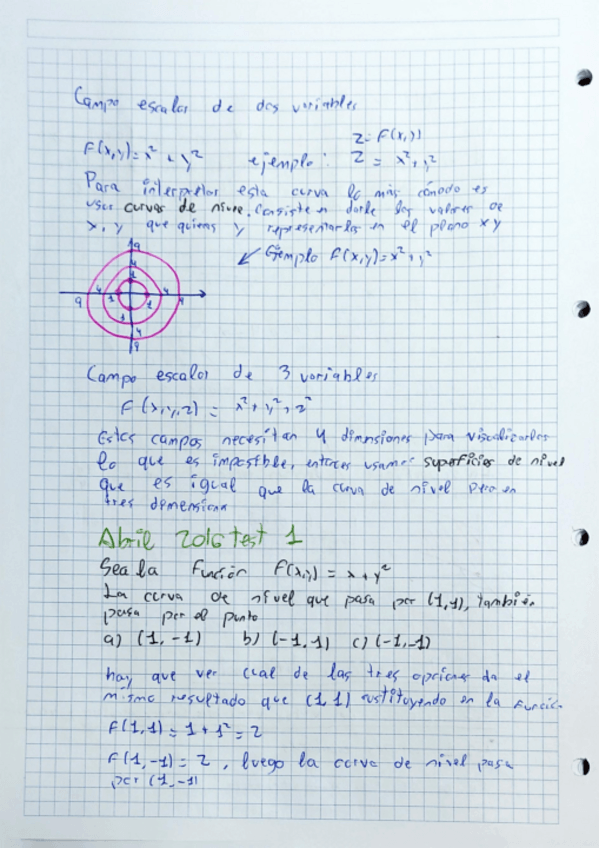 Campo escalar de dos variables
Z = F(x,y)
F(x,y) = x² + y² ejemplo: Z = x² + y²
Para interpretar esta curva lo más cómodo es
usar curvas de nivel. Consiste en darle los valores de
x, y que quieras y representarlos en el plano xy
↙ Ejemplo F(x,y) = x² + y²
9
4
1
9 4 1 1 4 9
1
4
9
Campo escalar de 3 variables
F(x,y,z) = x² + y² + z²
Estos campos necesitan 4 dimensiones para visualizarlos
lo que es imposible, entonces usamos superficies de nivel
que es igual que la curva de nivel pero en
tres dimensiones
Abril 2016 test 1
Sea la función F(x,y) = x + y²
La curva de nivel que pasa por (1,1), también
pasa por el punto
a) (1,-1) b) (-1,1) c) (-1,-1)
hay que ver cual de las tres opciones da el
mismo resultado que (1,1) sustituyendo en la función
F(1,1) = 1 + 1² = 2
F(1,-1) = 2, luego la curva de nivel pasa
por (1,-1)